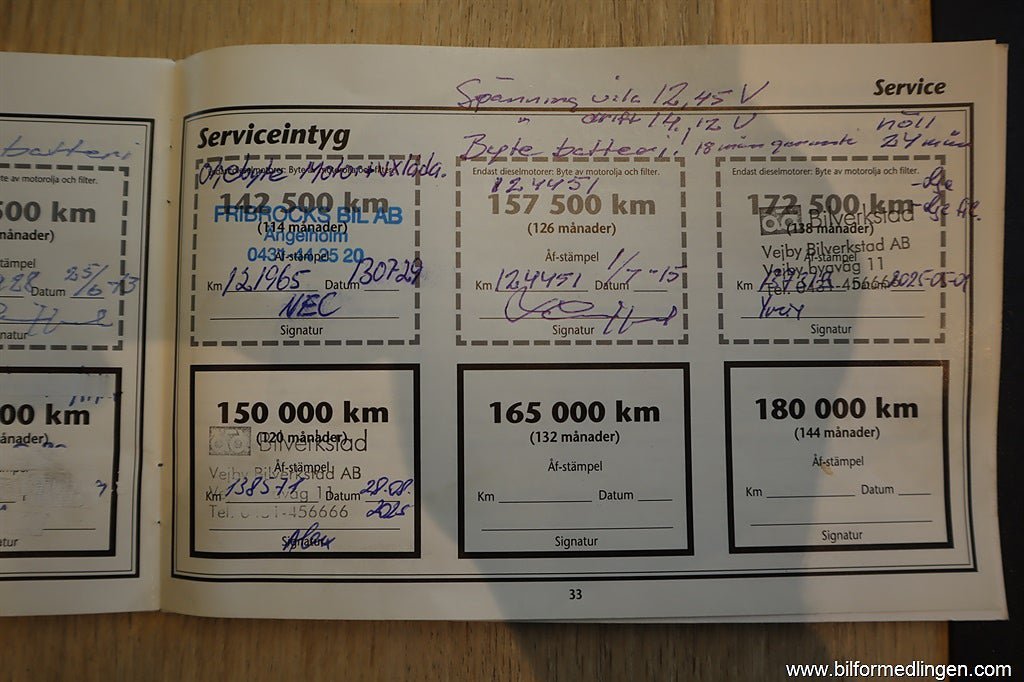 Service
Spänning vila 12,45 V
" drift 14,12 V
Byte batteri! 18 mån garanti
24 mån
batteri
Serviceintyg
Oljebyte Motor + växlåda.
yte av motorolja och filter.
500 km
månader)
stämpel
Datum 25/6-13
natur
142 500 km
(114 månader)
FRIBROCKS BIL AB
Ängelholm
0431-44 25 20
Åf-stämpel
Km 121965 Datum 130729
NEC
Signatur
Endast dieselmotorer: Byte av motorolja och filter.
124451
157 500 km
(126 månader)
Åf-stämpel
Km 124451 Datum 1/7-15
Signatur
Endast dieselmotorer: Byte av motorolja och filter.
172 500 km
(138 månader)
Bilverkstad
Åf-stämpel
Vejby Bilverkstad AB
Vejby byaväg 11
Tel. 0431-456666
Km Datum 2025-05-01
Signatur
00 km
ånader)
150 000 km
(120 månader)
Bilverkstad
Åf-stämpel
Vejby Bilverkstad AB
Km 138577 Datum 28.08.
2025
Tel. 0431-456666
Signatur
165 000 km
(132 månader)
Åf-stämpel
Km Datum
Signatur
180 000 km
(144 månader)
Åf-stämpel
Km Datum
Signatur
33
www.bilformedlingen.com